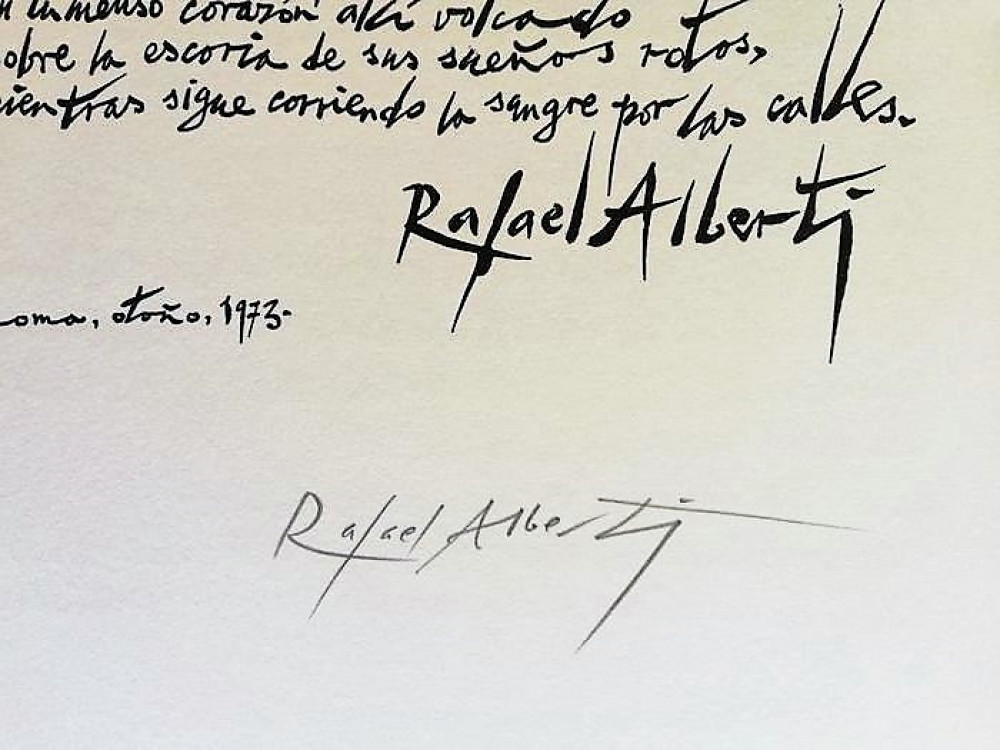 inmenso corazón allí volcado
obre la escoria de sus sueños rotos,
ientras sigue corriendo la sangre por las calles.
Rafael Alberti
oma, otoño, 1973.
Rafael Alberti